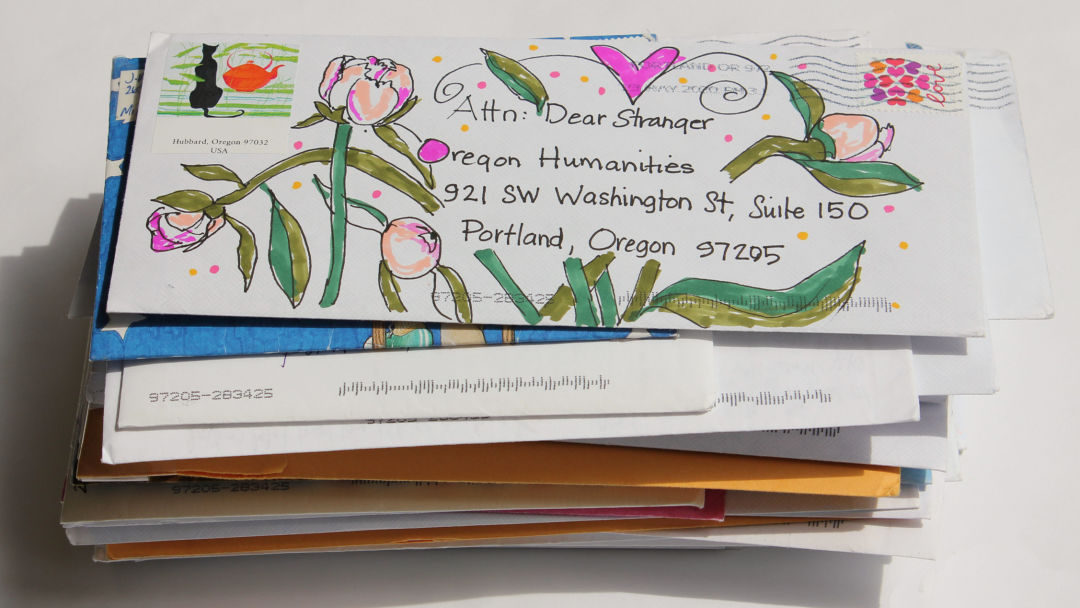 Hubbard, Oregon 97032
USA
PORTLAND OR 972
love
Attn: Dear Stranger
Oregon Humanities
921 SW Washington St, Suite 150
Portland, Oregon 97205
97205-283425
97205-283425
97205-283425